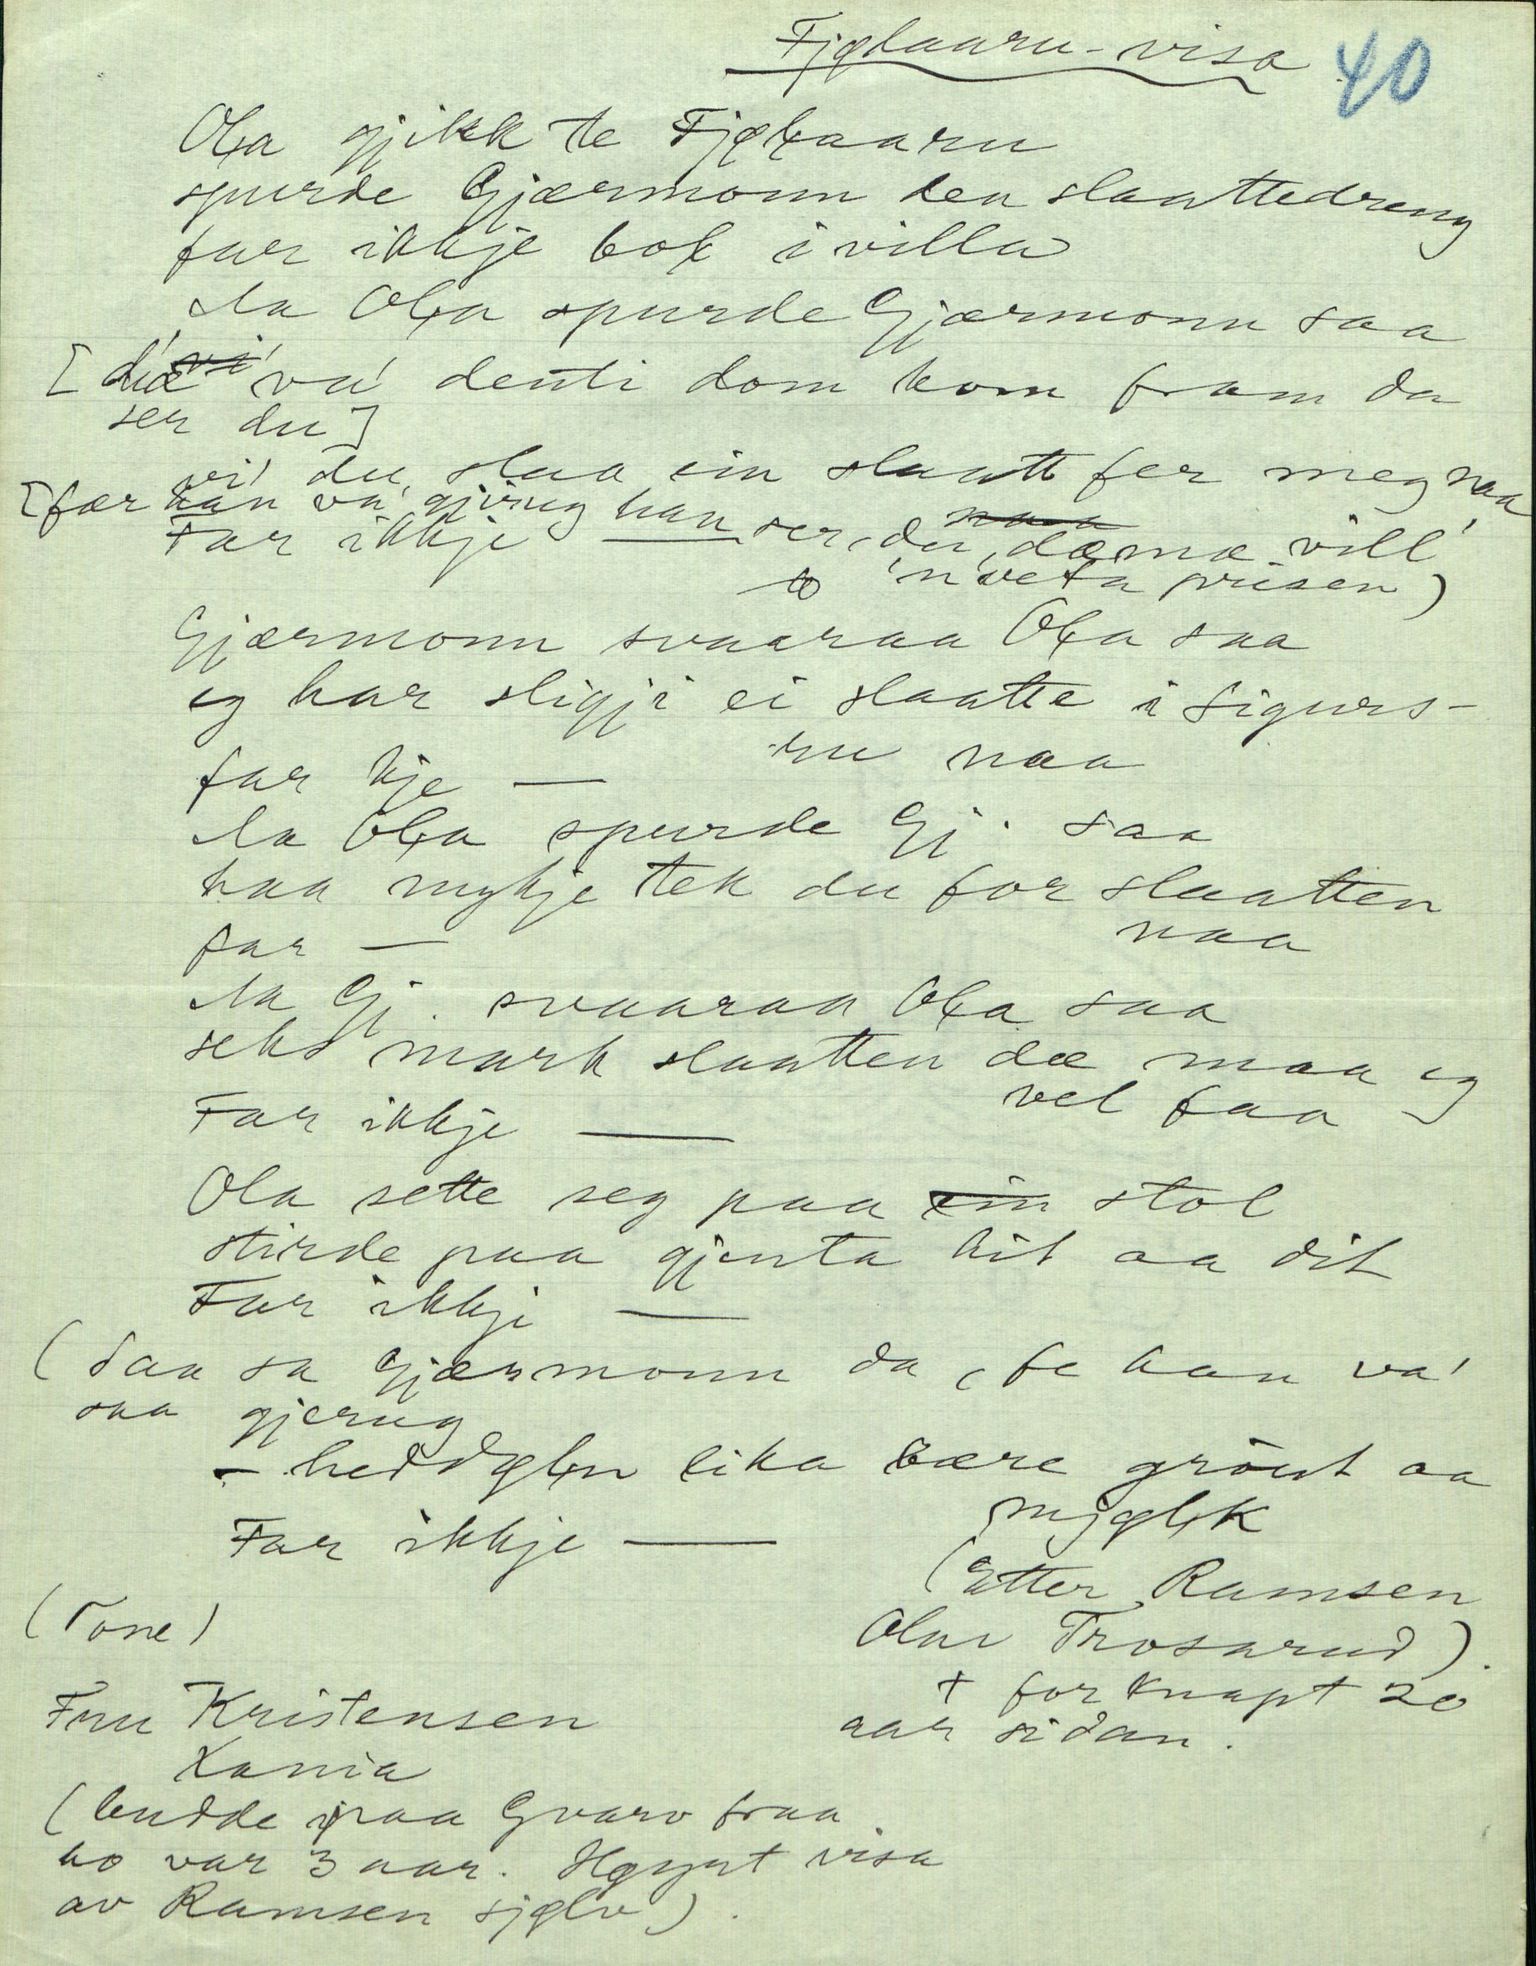 Fjølaaru-visa 40
Oła gjikk te Fjøłaaru
spurde Gjærmonn den slaattedreng
far ikkje bol i villa
Aa Oła spurde Gjærmonn saa
[dæ va' denti dom kom fram da
ser du]
vi' du slaa ein slaatt fer meg naa
[fær han va' gjirug han ser du, dæ mæ vill'
Far ikkje —
'n veta prisen)
Gjærmonn svaaraa Oła saa
eg har sligji ei slaatte i Sigurs-
ru naa
far kje —
Aa Oła spurde Gj. saa
haa mykje tek du for slaatten
naa
far —
Aa Gj. svaaraa Oła saa
seks mark slaatten dæ maa eg
vel faa
Far ikkje —
Ola sette seg paa ein stol
stirde paa gjenta hit aa dit
Far ikkje —
(Saa sa Gjærmonn da, fe han va'
saa gjerug
- heddøłn lika bære grøut aa
mjøłk
Far ikkje —
(Etter Ramsen
Olav Trosarud).
(Tone)
† for knapt 20
aar sidan.
Fru Kristensen
Xania
(budde paa Gvarv fraa
ho var 3 aar. Høyrt visa
av Ramsen sjølv).